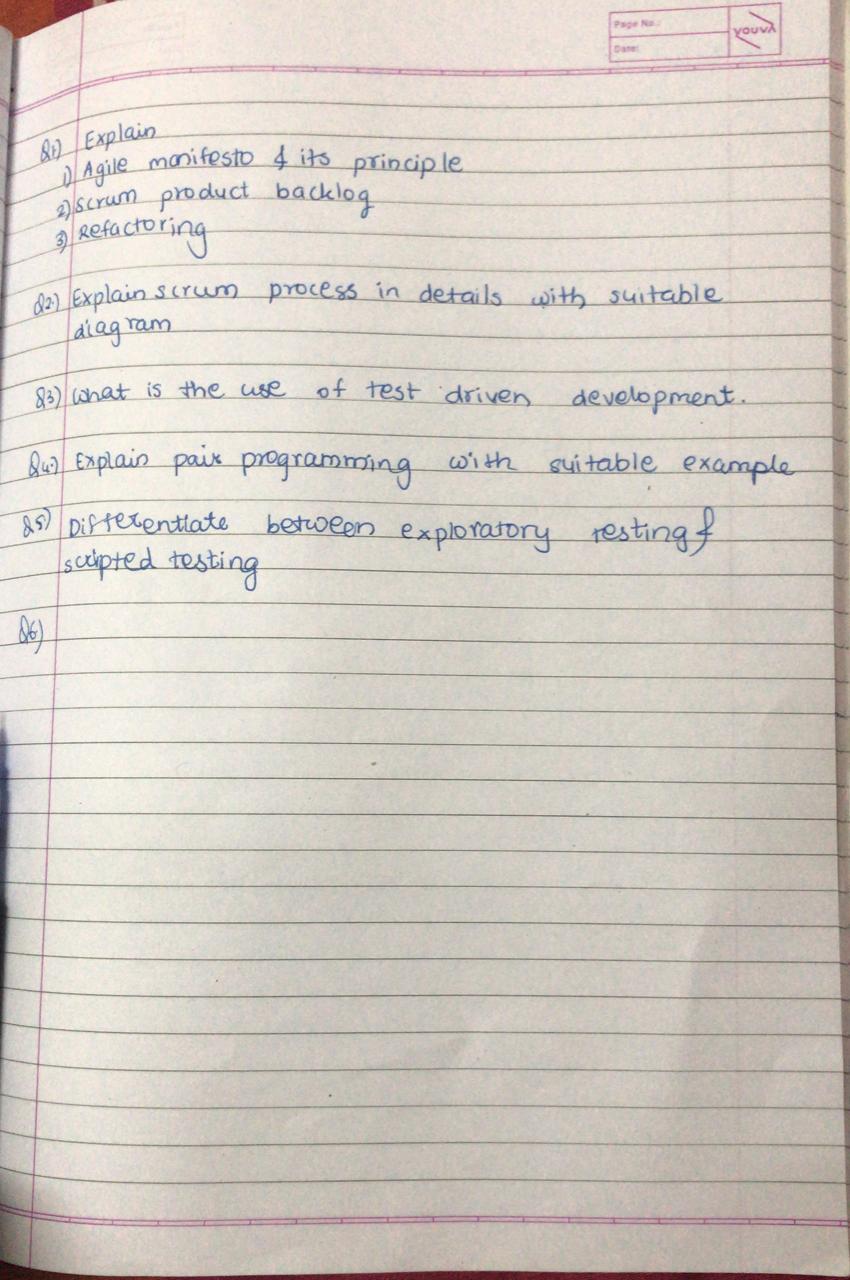 Page No.:
Date:
YOUVA
Q1) Explain
1) Agile manifesto & its principle
2) Scrum product backlog
3) Refactoring
Q2.) Explain scrum process in details with suitable
diagram
Q3) What is the use of test driven development.
Q4.) Explain pair programming with suitable example
Q5) Differentiate between exploratory testing &
scripted testing
Q6)